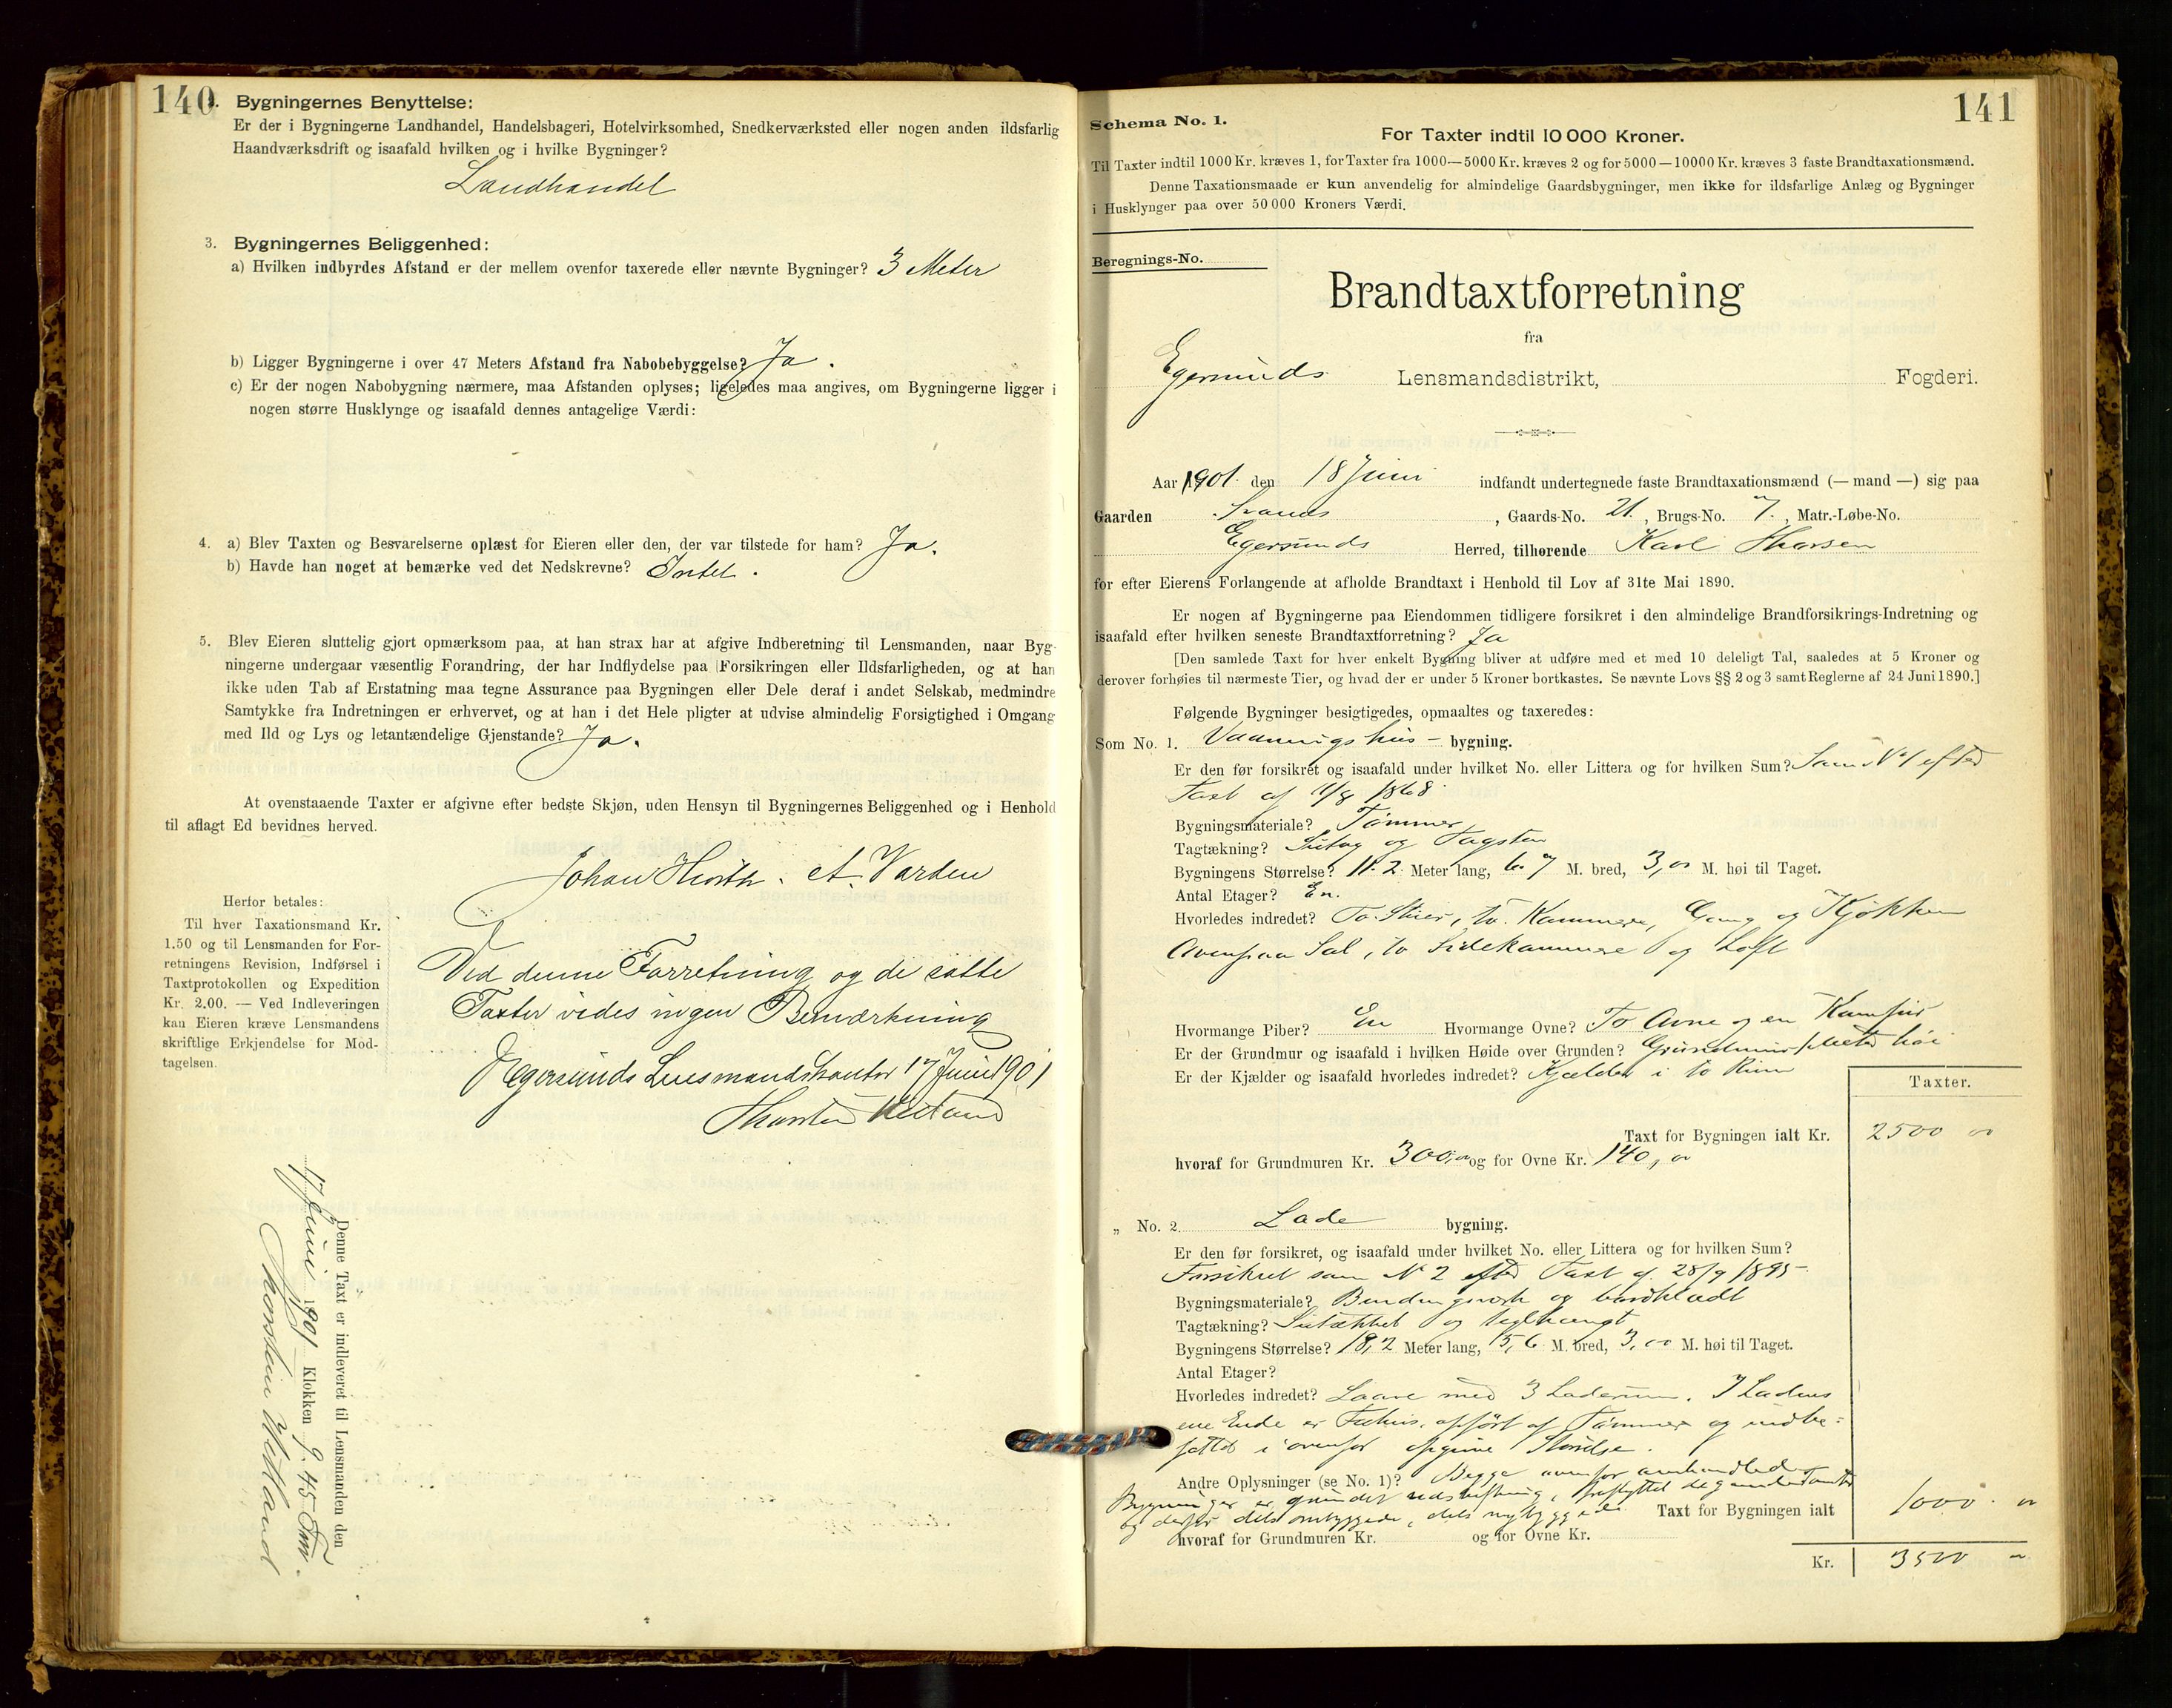 140
2. Bygningernes Benyttelse:
Er der i Bygningerne Landhandel, Handelsbageri, Hotelvirksomhed, Snedkerværksted eller nogen anden ildsfarlig
Haandværksdrift og isaafald hvilken og i hvilke Bygninger?
Landhandel
3. Bygningernes Beliggenhed:
a) Hvilken indbyrdes Afstand er der mellem ovenfor taxerede eller nævnte Bygninger? 3 Meter
b) Ligger Bygningerne i over 47 Meters Afstand fra Nabobebyggelse? Ja.
c) Er der nogen Nabobygning nærmere, maa Afstanden oplyses; ligeledes maa angives, om Bygningerne ligger i
nogen større Husklynge og isaafald dennes antagelige Værdi:
4. a) Blev Taxten og Besvarelserne oplæst for Eieren eller den, der var tilstede for ham? Ja.
b) Havde han noget at bemærke ved det Nedskrevne? Intet.
5. Blev Eieren sluttelig gjort opmærksom paa, at han strax har at afgive Indberetning til Lensmanden, naar Byg-
ningerne undergaar væsentlig Forandring, der har Indflydelse paa Forsikringen eller Ildsfarligheden, og at han
ikke uden Tab af Erstatning maa tegne Assurance paa Bygningen eller Dele deraf i andet Selskab, medmindre
Samtykke fra Indretningen er erhvervet, og at han i det Hele pligter at udvise almindelig Forsigtighed i Omgang
med Ild og Lys og letantændelige Gjenstande? Ja.
At ovenstaaende Taxter er afgivne efter bedste Skjøn, uden Hensyn til Bygningernes Beliggenhed og i Henhold
til aflagt Ed bevidnes herved.
Johan Hjorth. A. Varden
Herfor betales:
Til hver Taxationsmand Kr.
1.50 og til Lensmanden for For-
retningens Revision, Indførsel i
Taxtprotokollen og Expedition
Kr. 2.00. — Ved Indleveringen
kan Eieren kræve Lensmandens
skriftlige Erkjendelse for Mod-
tagelsen.
Ved denne Forretning og de satte
Taxter vides ingen Bemærkning
Egersunds Lensmandskontor 17 Juni 1901
Denne Taxt er indleveret til Lensmanden den
17 Juni 1901 Klokken 9.45 Fm.
141
Schema No. 1.
For Taxter indtil 10 000 Kroner.
Til Taxter indtil 1000 Kr. kræves 1, for Taxter fra 1000—5000 Kr. kræves 2 og for 5000—10000 Kr. kræves 3 faste Brandtaxationsmænd.
Denne Taxationsmaade er kun anvendelig for almindelige Gaardsbygninger, men ikke for ildsfarlige Anlæg og Bygninger
i Husklynger paa over 50 000 Kroners Værdi.
Beregnings-No.
Brandtaxtforretning
fra
Egersunds Lensmandsdistrikt, Fogderi.
Aar 1901. den 18 Juni indfandt undertegnede faste Brandtaxationsmænd (— mand —) sig paa
Gaarden , Gaards-No. 21., Brugs-No. 7., Matr.-Løbe-No.
Egersunds Herred, tilhørende Karl
for efter Eierens Forlangende at afholde Brandtaxt i Henhold til Lov af 31te Mai 1890.
Er nogen af Bygningerne paa Eiendommen tidligere forsikret i den almindelige Brandforsikrings-Indretning og
isaafald efter hvilken seneste Brandtaxtforretning? Ja
[Den samlede Taxt for hver enkelt Bygning bliver at udføre med et med 10 deleligt Tal, saaledes at 5 Kroner og
derover forhøies til nærmeste Tier, og hvad der er under 5 Kroner bortkastes. Se nævnte Lovs §§ 2 og 3 samt Reglerne af 24 Juni 1890.]
Følgende Bygninger besigtigedes, opmaaltes og taxeredes:
Som No. 1. Vaaningshus- bygning.
Er den før forsikret og isaafald under hvilket No. eller Littera og for hvilken Sum? Som No 1 efter
Taxt af 11/8 1868
Bygningsmateriale? Tømmer
Tagtækning? Sutag og Tagsten
Bygningens Størrelse? 11.2 Meter lang, 6.7 M. bred, 3,00 M. høi til Taget.
Antal Etager? En.
Hvorledes indredet? To Stuer, to Kammere, Gang og Kjøkken
Ovenpaa Sal, to Sidekammere og Loft
Hvormange Piber? En Hvormange Ovne? To Ovne og en Komfur
Er der Grundmur og isaafald i hvilken Høide over Grunden? Grundmur 1 Meter høi
Er der Kjælder og isaafald hvorledes indredet? Kjælder i to Rum
Taxter.
Taxt for Bygningen ialt Kr. 2500 00
hvoraf for Grundmuren Kr. 300,00 og for Ovne Kr. 140,00
„ No. 2. Lade bygning.
Er den før forsikret, og isaafald under hvilket No. eller Littera og for hvilken Sum?
Forsikret som No 2 efter Taxt af 28/9 1895
Bygningsmateriale? Bindingsverk og bordklædt
Tagtækning? Sutækket og teglhængt
Bygningens Størrelse? 18,2 Meter lang, 5,6 M. bred, 3,00 M. høi til Taget.
Antal Etager?
Hvorledes indredet? Laave med 3 Laderum. I Ladens
ene Ende er Fæhus, opført af Tømmer og indbe-
fattet i ovenfor opgivne Størrelse.
Andre Oplysninger (se No. 1)? Begge ovenfor omhandlede
Bygninger er grundet udskiftning, flyttet
og derfor dels ombyggede, dels nybyggede Taxt for Bygningen ialt 1000. 00
hvoraf for Grundmuren Kr. og for Ovne Kr.
Kr. 3500 00